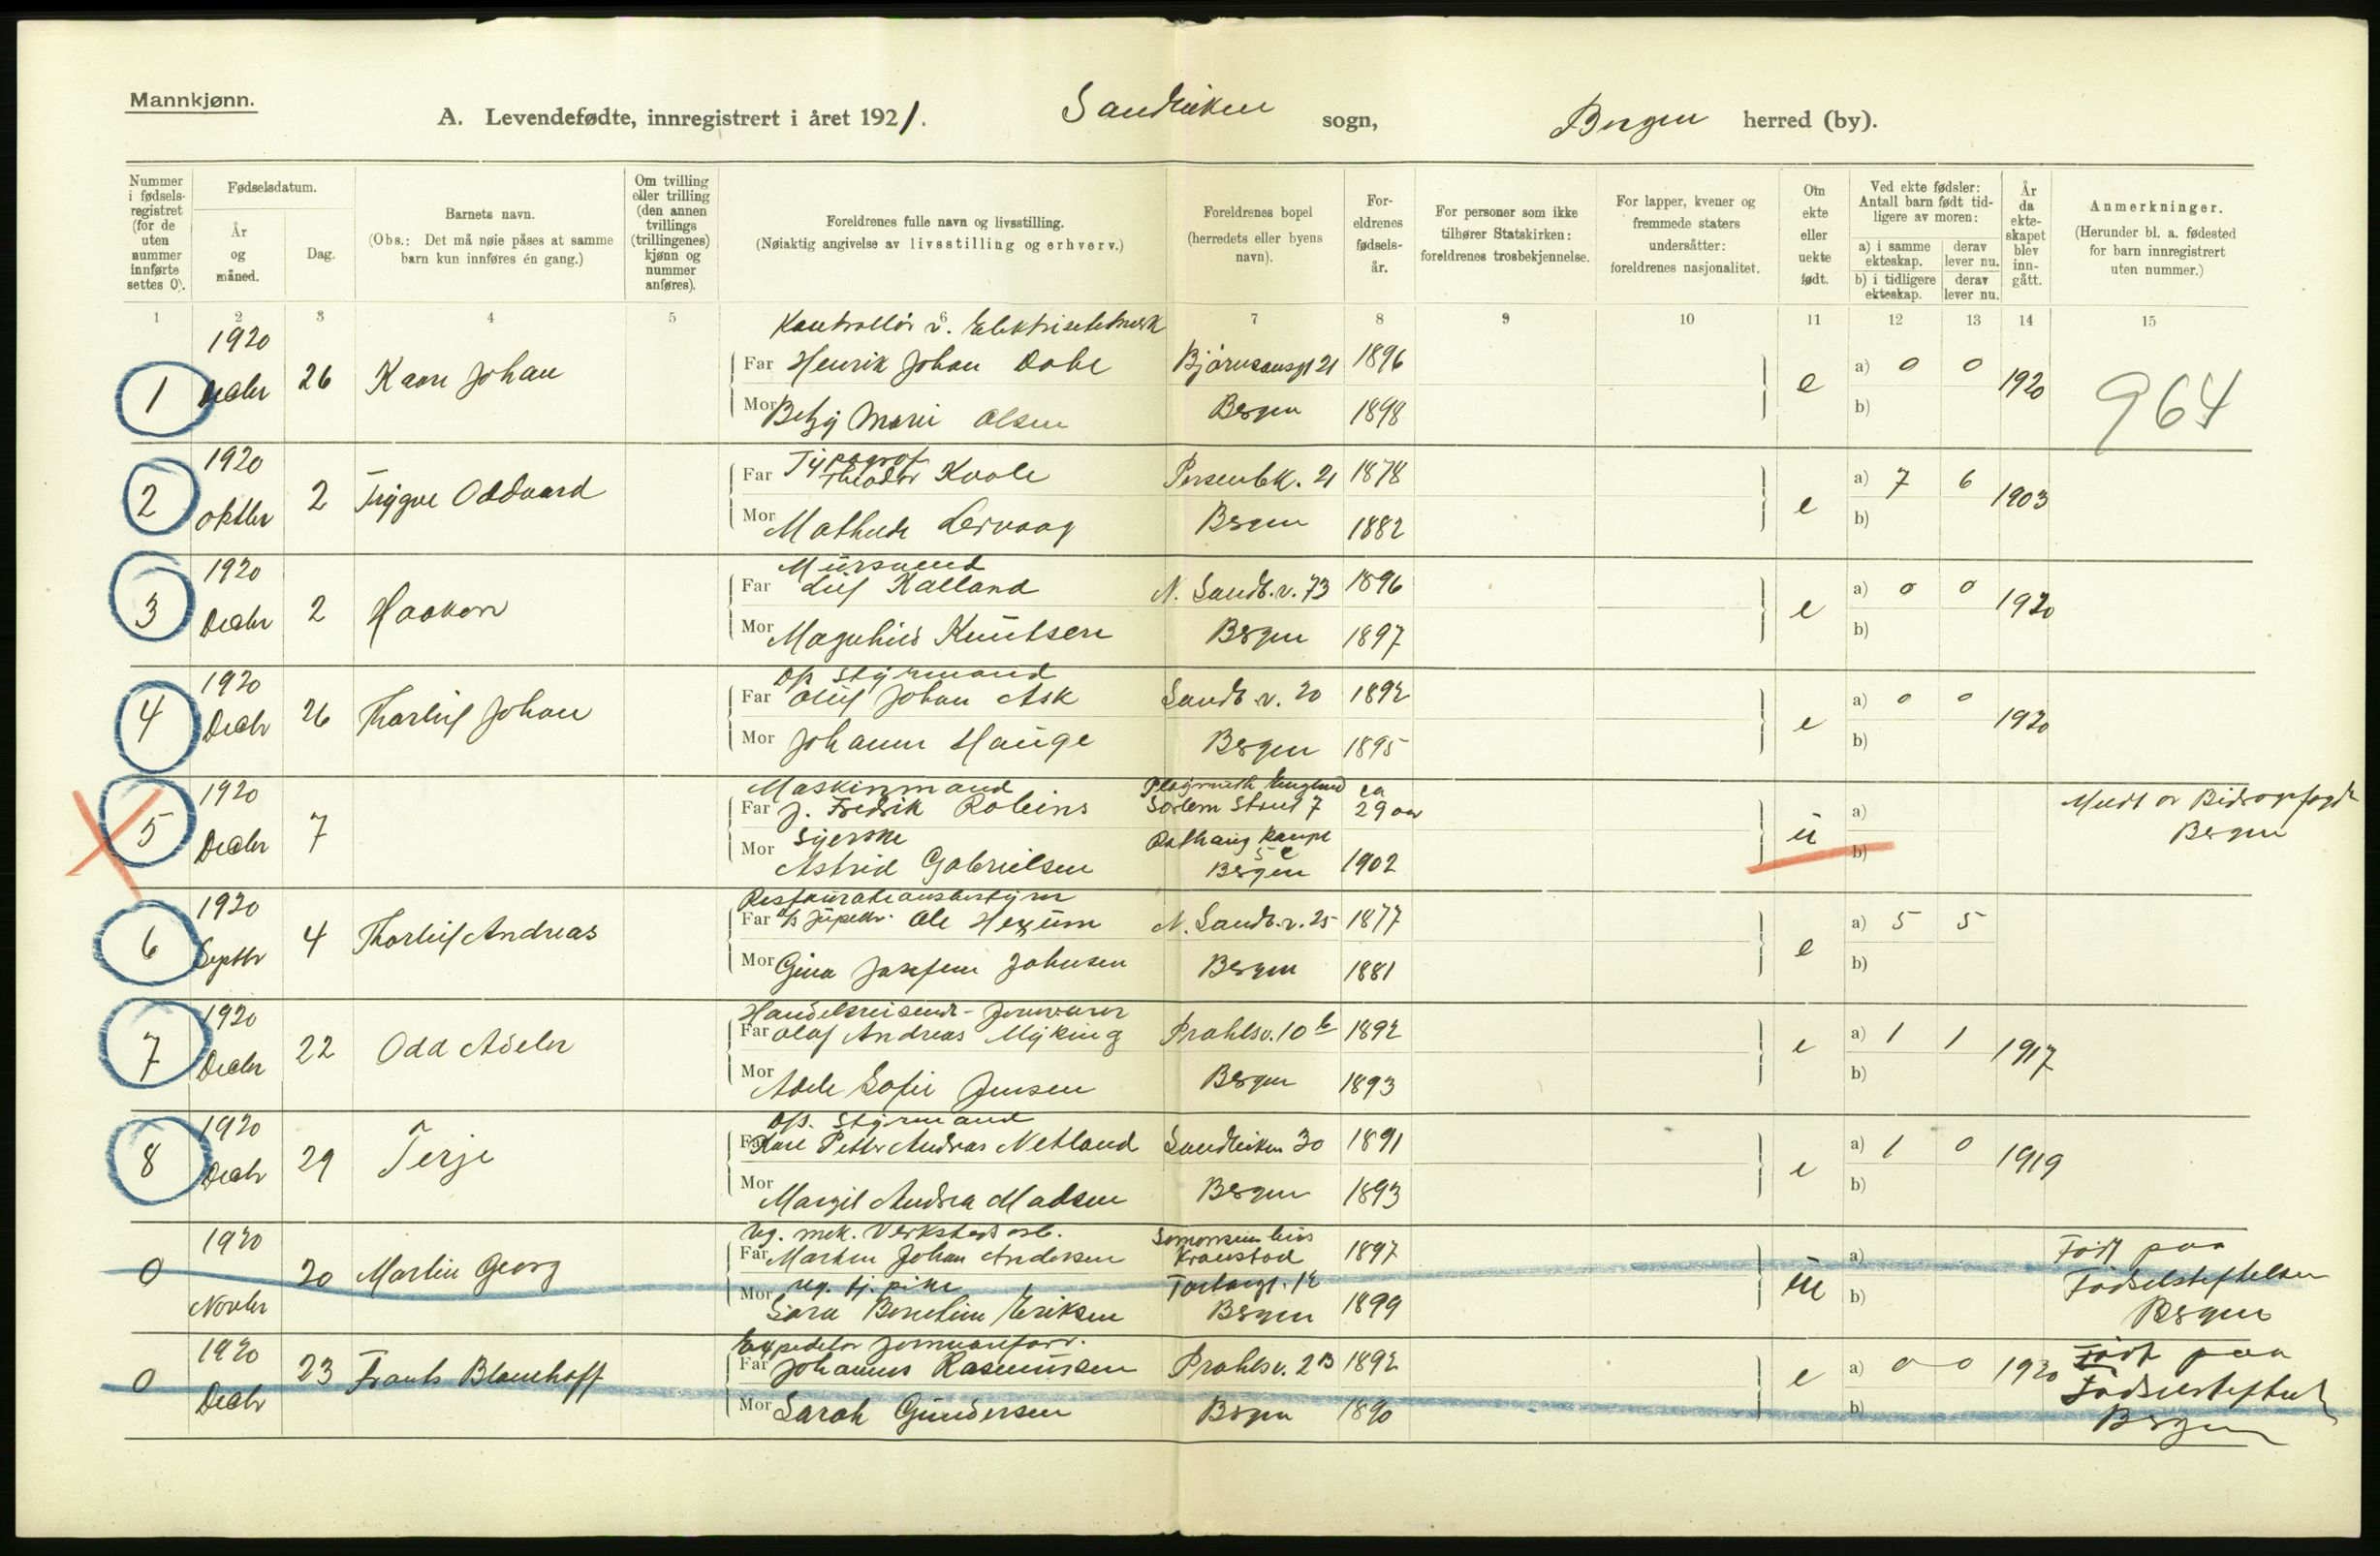 Mannkjønn.
A. Levendefødte, innregistrert i året 1921. Sandviken sogn, Bergen herred (by).
Nummer i fødsels-registret (for de uten nummer innførte settes 0).
Fødselsdatum.
År og måned.
Dag.
Barnets navn.
(Obs.: Det må nøie påses at samme barn kun innføres én gang.)
Om tvilling eller trilling (den annen tvillings (trillingenes) kjønn og nummer anføres).
Foreldrenes fulle navn og livsstilling.
(Nøiaktig angivelse av livsstilling og erhverv.)
Foreldrenes bopel (herredets eller byens navn).
For-eldrenes fødsels-år.
For personer som ikke tilhører Statskirken: foreldrenes trosbekjennelse.
For lapper, kvener og fremmede staters undersåtter: foreldrenes nasjonalitet.
Om ekte eller uekte født.
Ved ekte fødsler: Antall barn født tid-ligere av moren:
a) i samme ekteskap. derav lever nu.
b) i tidligere ekteskap. derav lever nu.
År da ekte-skapet blev inn-gått.
Anmerkninger.
(Herunder bl. a. fødested for barn innregistrert uten nummer.)
1 2 3 4 5 6 7 8 9 10 11 12 13 14 15
Kontrollør v. Elektricitetsverk
1 1920 Decbr 26 Kaare Johan
Far Henrik Johan Dobe Bjørnsonsgt 21 1896
Mor Betzy Marie Olsen Bergen 1898
e a) 0 0 1920 b) 964
Typograf
2 1920 Oktbr 2 Trygve Oddvard
Far Theodor Kvale Persenbk. 21 1878
Mor Mathilde Lervaag Bergen 1882
e a) 7 6 1903 b)
Mursvend
3 1920 Decbr 2 Haakon
Far Leif Kalland N. Sandv. v. 73 1896
Mor Magnhild Knutsen Bergen 1897
e a) 0 0 1920 b)
Styrmand
4 1920 Decbr 26 Thorleif Johan
Far Oluf Johan Ask Sandv. v. 20 1892
Mor Johanne Hauge Bergen 1895
e a) 0 0 1920 b)
Maskinmand England ca
5 1920 Decbr 7
Far J. Fredrik Robins Street 7 29 aar
Syerske
Mor Astrid Gabrielsen Bergen 1902
u a) b)
Meldt av Bidragsfogd Bergen
Restaurationsbestyrer
6 1920 Septbr 4 Thorleif Andreas
Far D/S Jupiter Ole Hexum N. Sandv. v. 25 1877
Mor Gina Josefine Johnsen Bergen 1881
e a) 5 5 b)
Handelsreisende - Jernvarer
7 1920 Decbr 22 Odd Adeler
Far Olaf Andreas Myking Prahlsv. 10 b 1892
Mor Adele Sofie Jensen Bergen 1893
e a) 1 1 1917 b)
Styrmand
8 1920 Decbr 29 Terje
Far Peter Andreas Netland Sandviken 30 1891
Mor Margit Andrea Madsen Bergen 1893
e a) 1 0 1919 b)
Ug. mek. Verkstedsarb.
0 1920 Novbr 20 Martin Georg
Far Martin Johan Andersen 1897
ug. tj. pike
Mor Sara Eriksen Bergen 1899
u a) b)
Født paa Fødselsstiftelsen Bergen
Expeditør
0 1920 Decbr 23 Frants Blomhoff
Far Johannes Rasmussen Prahlsv. 2 B 1892
Mor Sarah Gundersen Bergen 1890
e a) 0 0 1920 b)
Født paa Fødselsstiftels Bergen